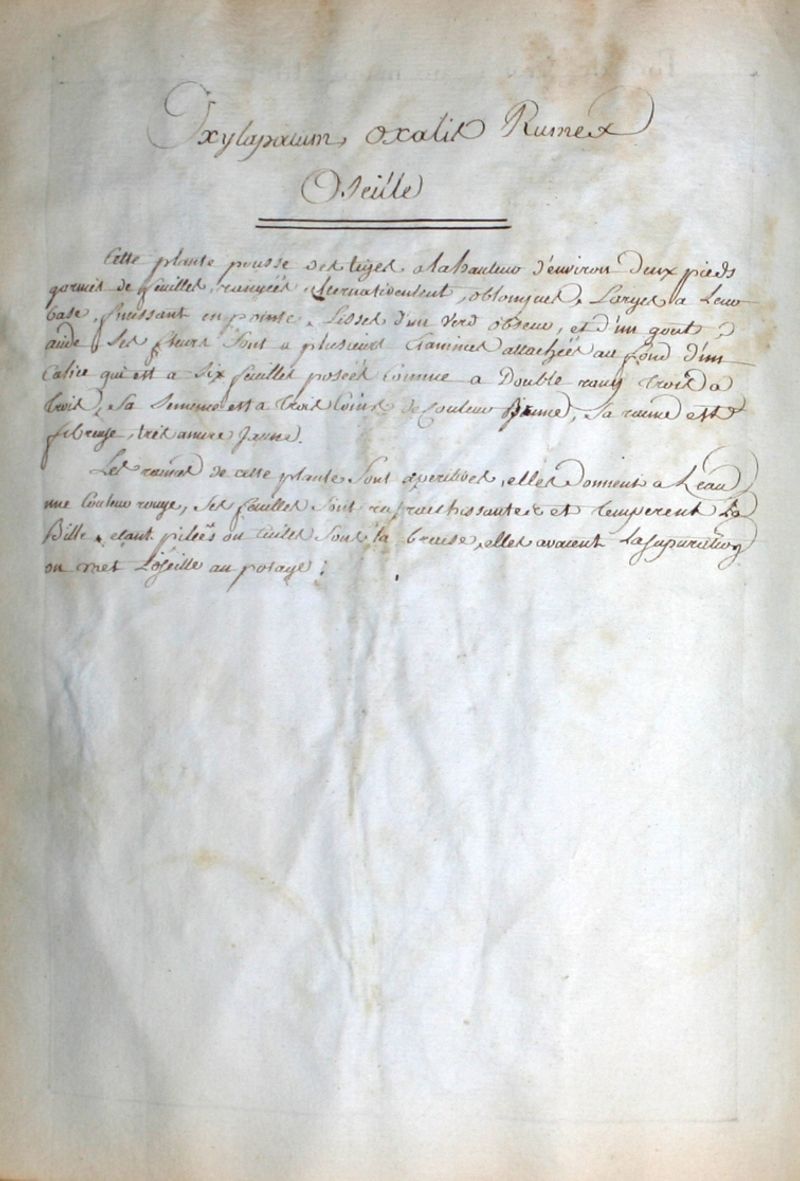 Oxylapatum, oxalis Rumex
Oseille
Cette plante pousse des tiges a la hauteur d'environ Deux pieds
garnies de feuilles, rangées alternativement, oblongues, Larges a Leur
base, finissant en pointe, Lisses d'un Verd obscur, et d'un gout
acide Ses fleurs Sont a plusieurs Etamines attachées au fond d'un
Calice qui est a Six feuilles posées Comme a Double rang Trois a
Trois, Sa Semence est a Trois Coins de Couleur Brune, Sa racine est
fibreuse, très amere Jaune.
Les racines de cette plante Sont aperitives, elles Donnent a L'eau
une Couleur rouge, Ses feuilles Sont rafraichissantes et temperent La
Bille, etant pilées ou cuites Sous la braise, elles avancent La supuration
on met L'oseille au potage.